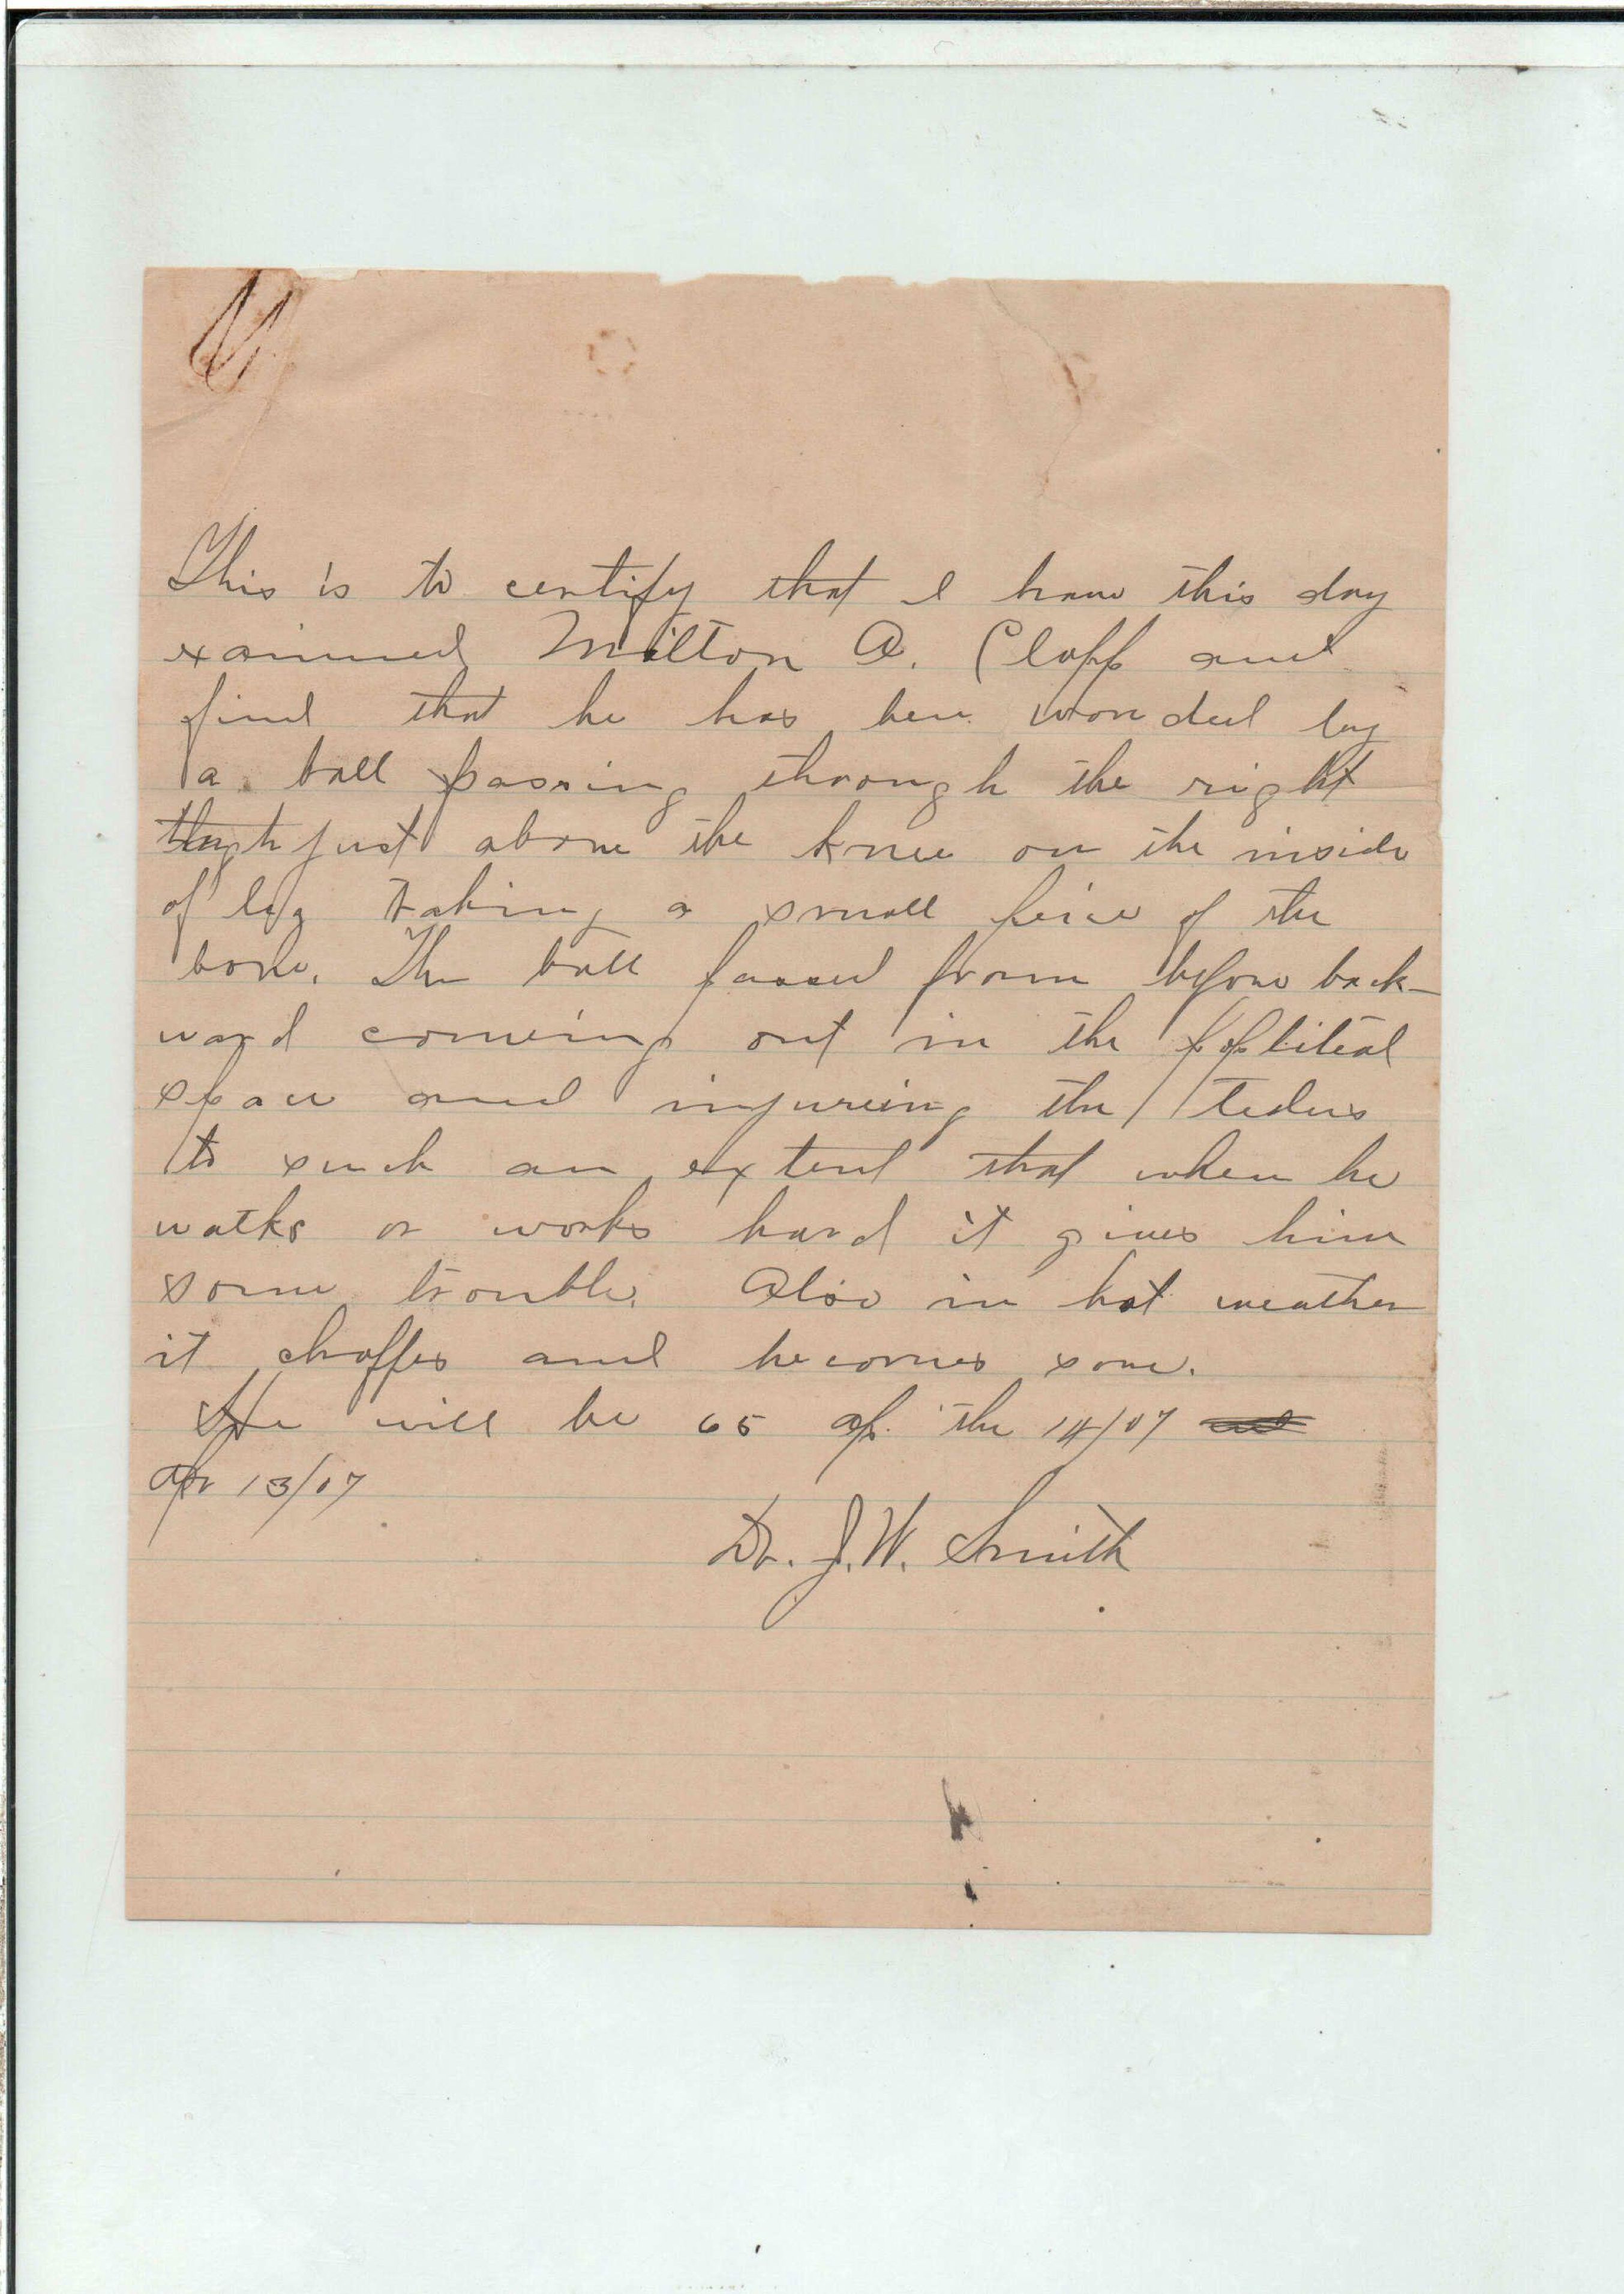 This is to certify that I have this day
examined Milton A. Clapp and
find that he has ben wonded by
a ball passing through the right
thigh just above the knee on the inside
of leg taking a small peice of the
bone. The ball passed from before back-
ward comeing out in the popliteal
space and injureing the tedens
to such an extent that when he
walks or works hard it gives him
some trouble. Also in hot weather
it chaffes and becomes sore.
He will be 65 Ap. the 14/07
Apr 13/07
Dr. J. W. Smith